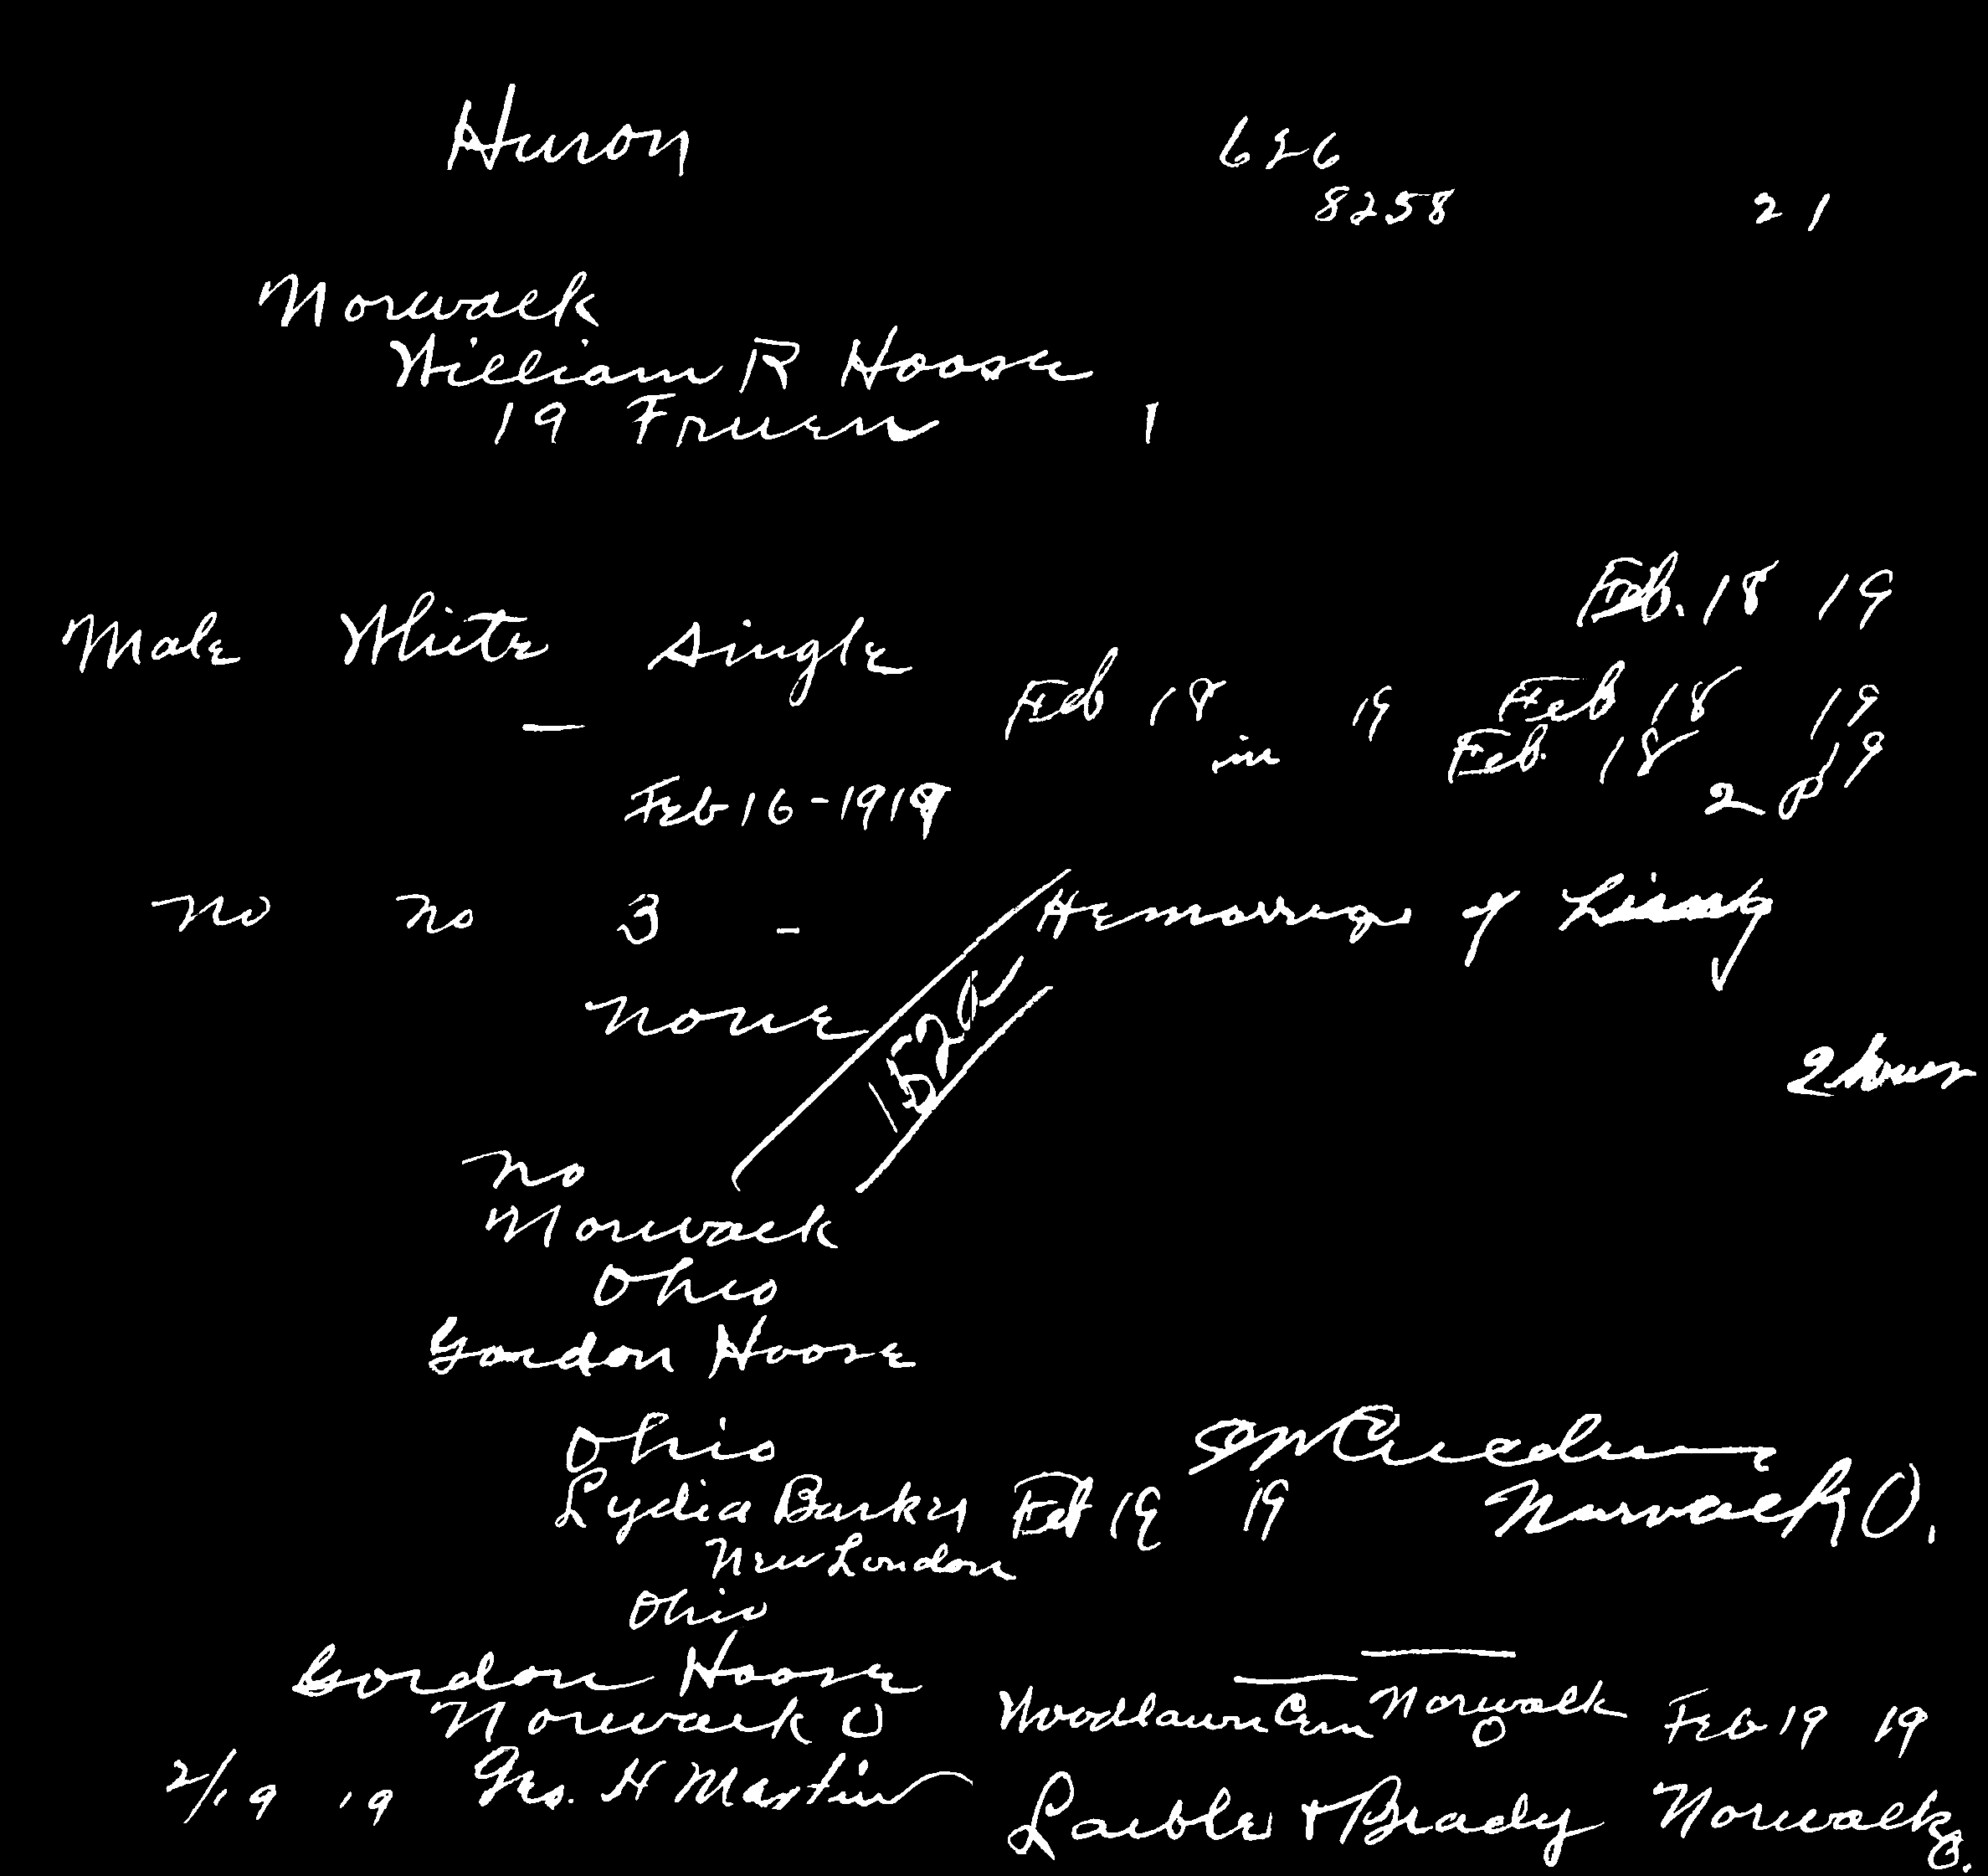 Huron 626
8258 21
Norwalk
William R Hoose
19 Fruen 1
Feb. 18 19
Male White Single
Feb 18 19 Feb 18 19
— in Feb. 18 19
Feb 16-1919 2 P
No No 3 - Hemorrage of
None 1520
2 hours
No
Norwalk
Ohio
Gordon Hoose
Ohio
Lydia Barker Feb 19 19 Norwalk O.
New London
Ohio
Gordon Hoose
Norwalk O Woodlawn Cem Norwalk O Feb 19 19
2/19 19 Geo. H Martin Laible & Brady Norwalk O.